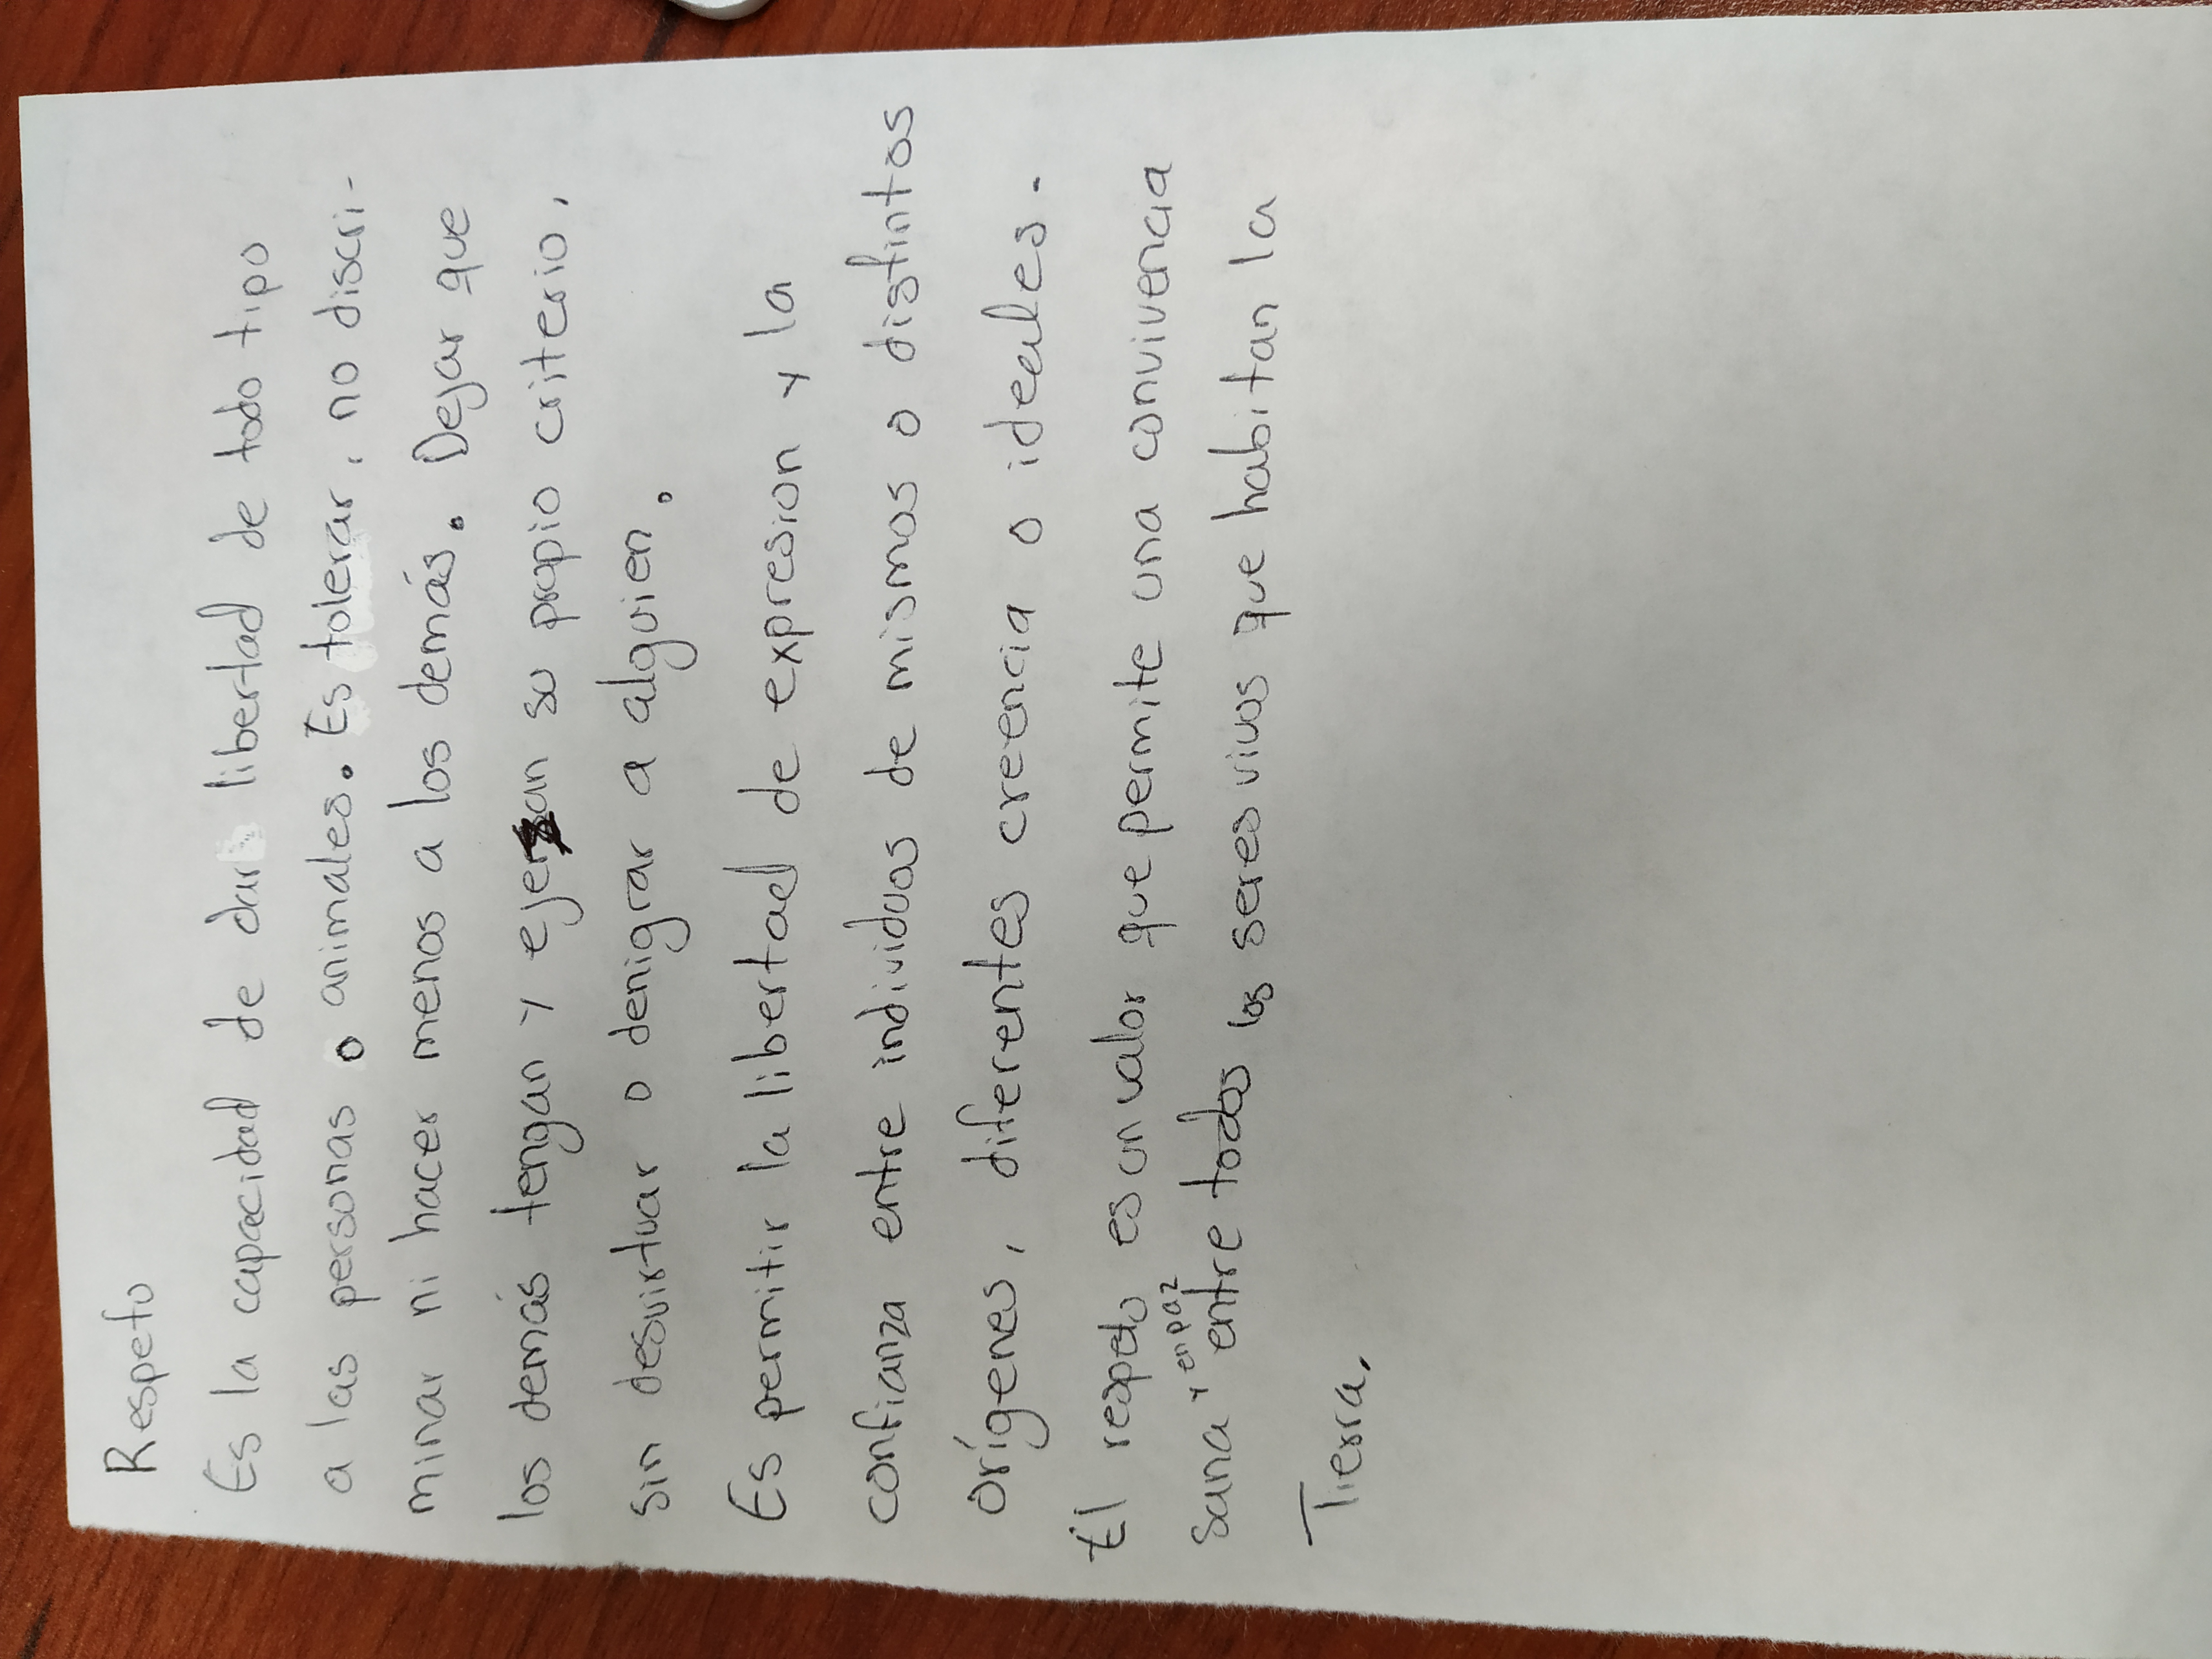 Respeto
Es la capacidad de dar libertad de todo tipo
a las personas o animales. Es tolerar, no discri-
minar ni hacer menos a los demás. Dejar que
los demás tengan y ejerzan su propio criterio,
sin desvirtuar o denigrar a alguien.
Es permitir la libertad de expresion y la
confianza entre individuos de mismos o distintos
orígenes, diferentes creencia o ideales.
El respeto es un valor que permite una convivencia
sana y en paz entre todos los seres vivos que habitan la
Tierra.